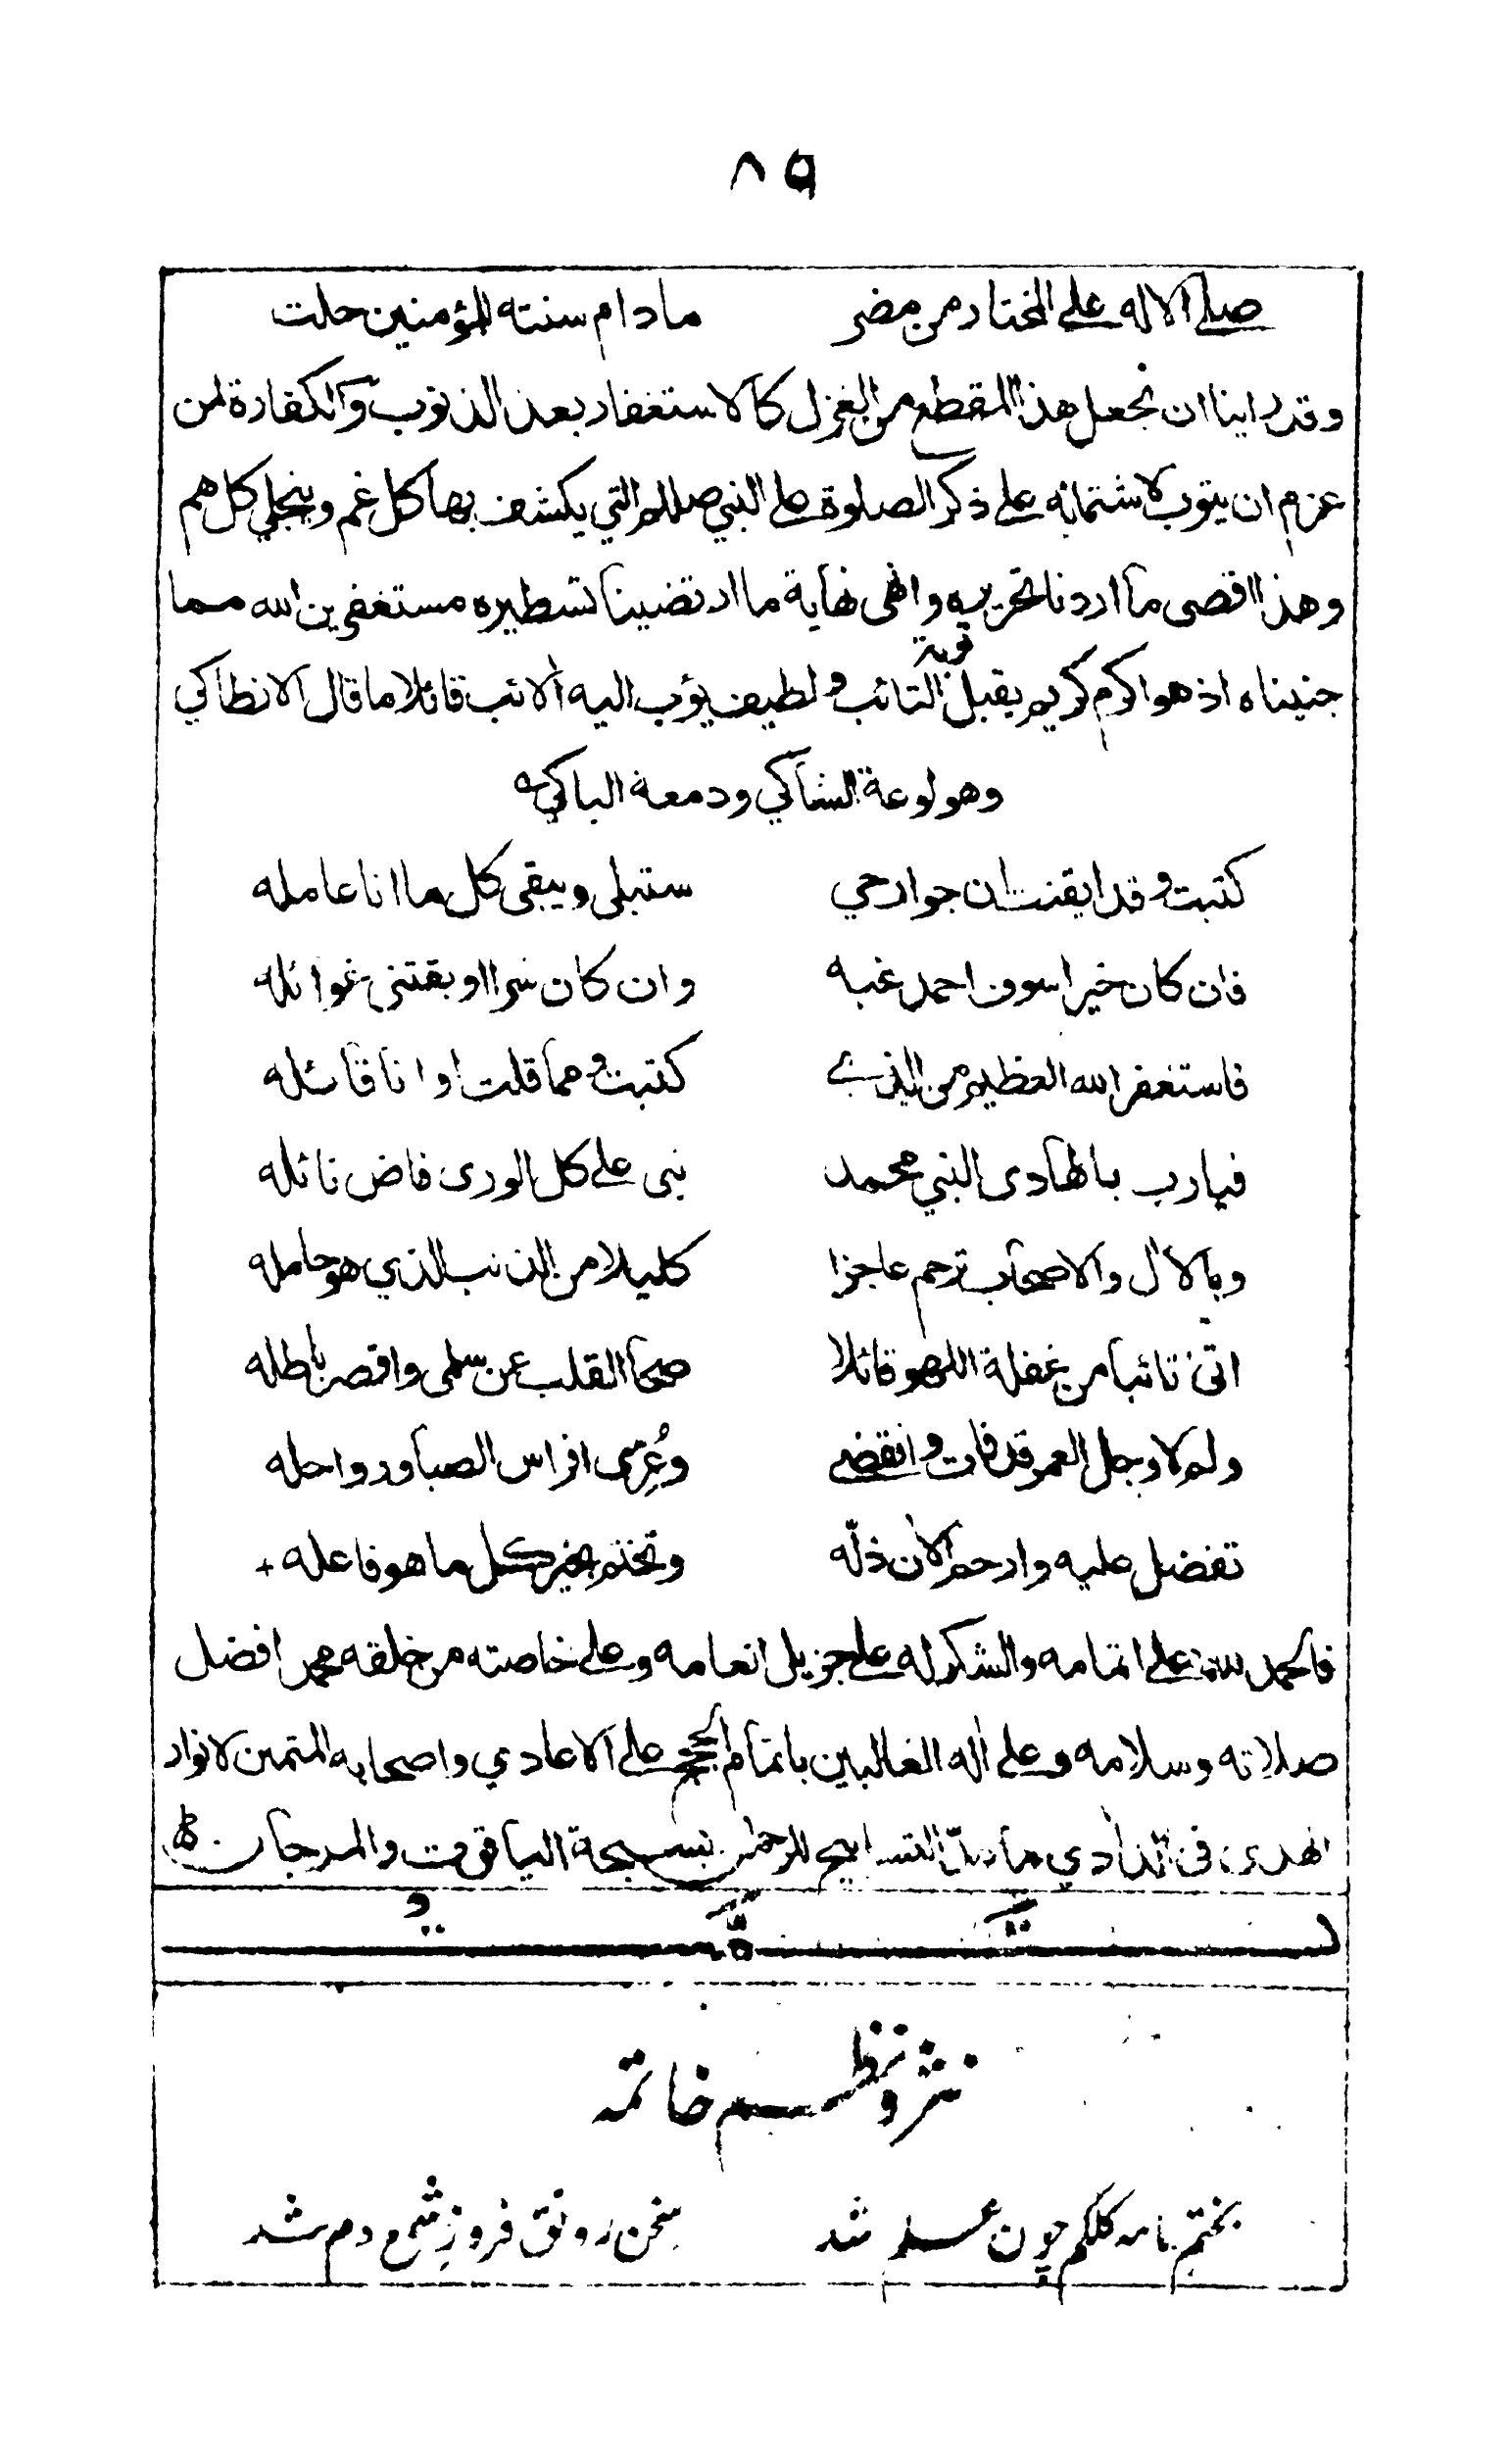 ٨٩
صلى الاله على المختار من مضر مادام سنته للمؤمنين حلت
وقد راينا ان نجعل هذا المقطع من الغزل كالاستغفار بعد الذنوب والكفارة لمن
عزم ان يتوب لاشتماله على ذكر الصلوة على النبي صللم التي يكشف بها كل غم وينجلي كل هم
وهذا اقصى ما اردنا تحريره وانهى نهاية ما ارتضينا تسطيره مستغفرين الله مما
جنيناه اذ هو اكرم كريم يقبل توبة التائب ولطيف يؤب اليه الائب قائلا ما قال الانطاكي
وهو لوعة الشاكي ودمعة الباكي
كتبت وقد ايقنت ان جوارحي ستبلى ويبقى كل ما انا عامله
فان كان خيرا سوف احمد غبه وان كان شرا اوبقتنى غوائله
فاستغفر الله العظيم من الذي كتبت ومما قلت او انا قائله
فيارب بالهادى النبي محمد نبى على كل الورى فاض نائله
وبالال والاصحاب ترحم عاجزا كليلا من الذنب الذي هو حامله
اتى تائبا من غفلة اللهو قائلا صحا القلب عن سلمى واقصر باطله
ولم لا وجل العمر قد فات وانقضى وعُرّى افراس الصبا ورواحله
تفضل عليه وارحم الان ذلّه وتختم بخير كل ما هو فاعله
فالحمد لله على اتمامه والشكر له على جزيل انعامه وعلى خاصته من خلقه محمد افضل
صلاته وسلامه وعلى اله الغالبين باتمام الحجج على الاعادي واصحابه المتمين لانوار
الهدى فى النادي ما التسابيح للرحمن بسبحة الياقوت والمرجان
نثر ونظم خاتمه
بختم نامه كلكم چون علم شد سخن رونق فروز شمع دم شد